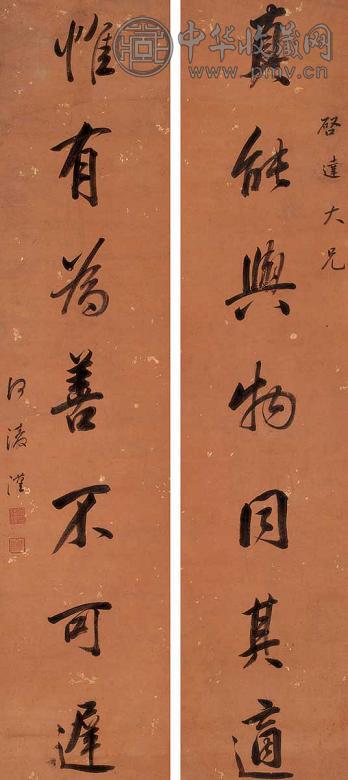 啓達大兄
真能與物同其適
惟有為善不可遲
何淩漢
中华收藏网
www.pmv.cn